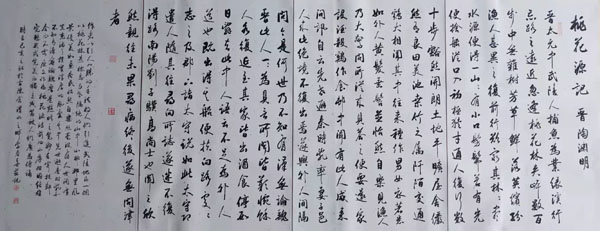 桃花源記 晋陶渊明
晋太元中武陵人捕魚為業緣溪行
忘路之遠近忽逢桃花林夹岸數百
步中無雜樹芳草鮮美落英缤紛
漁人甚異之復前行欲窮其林林尽
水源便得一山山有小口髣髴若有光
便捨船從口入初極狹才通人復行數
十步豁然開朗土地平曠屋舍儼
然有良田美池桑竹之属阡陌交通
鷄犬相闻其中往来種作男女衣着悉
如外人黄髮垂髫并怡然自樂見漁人
乃大驚問所從来具答之便要還家
設酒殺鷄作食村中闻有此人咸来
問訊自云先世避秦時亂率妻子邑
人来此绝境不復出焉遂與外人间隔
問今是何世乃不知有漢無論魏
晋此人一一為具言所闻皆歎惋餘
人各復延至其家皆出酒食停數
日辭去此中人語云不足為外人
道也既出得其船便扶向路處處
志之及郡下詣太守說如此太守即
遣人随其往尋向所誌遂迷不復
得路南陽劉子驥高尚士也闻之欣
然親往未果尋病终後遂無問津
者